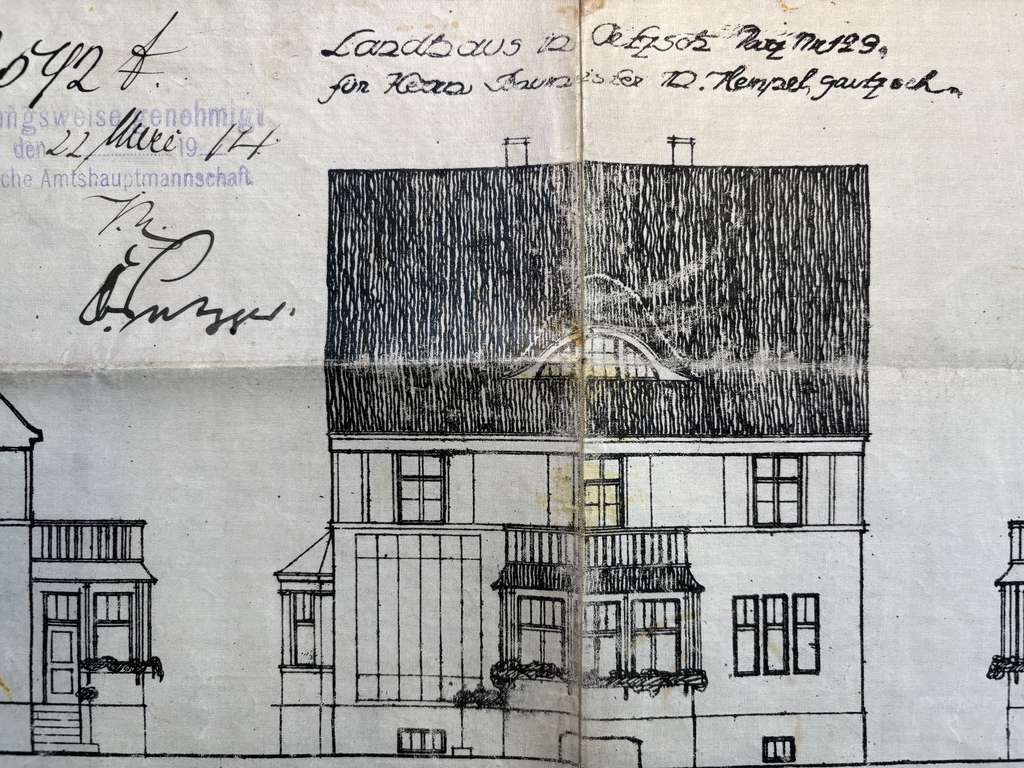 592 A.
ngsweise genehmigt
den 22 März 19 14.
che Amtshauptmannschaft
Landhaus in Oetzsch Parz Nr 129.
für Herrn Baumeister W. Hempel, Gautzsch.